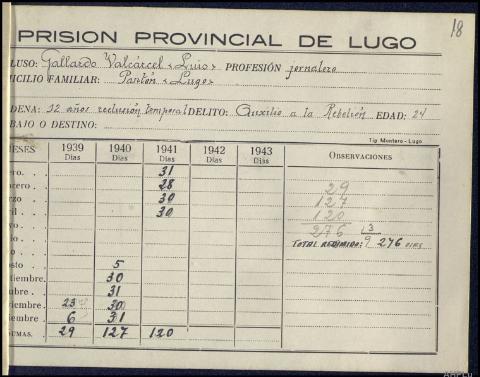 18
PRISION PROVINCIAL DE LUGO
LUSO: Gallardo Valcárcel «Luis» PROFESIÓN jornalero
ICILIO FAMILIAR: Pantón «Lugo»
DENA: 12 años reclusión temporal DELITO: Auxilio a la Rebelión EDAD: 24
BAJO O DESTINO:
Tip. Montero - Lugo
MESES 1939 Días 1940 Días 1941 Días 1942 Días 1943 Días OBSERVACIONES
ero. 31
rero. 28 29
rzo 30 127
il 30 120
yo 276 3
io TOTAL REDIMIDO: 9 276 DIAS
io
osto 5
tiembre. 30
ubre 31
viembre 23 30
iembre 6 31
SUMAS. 29 127 120